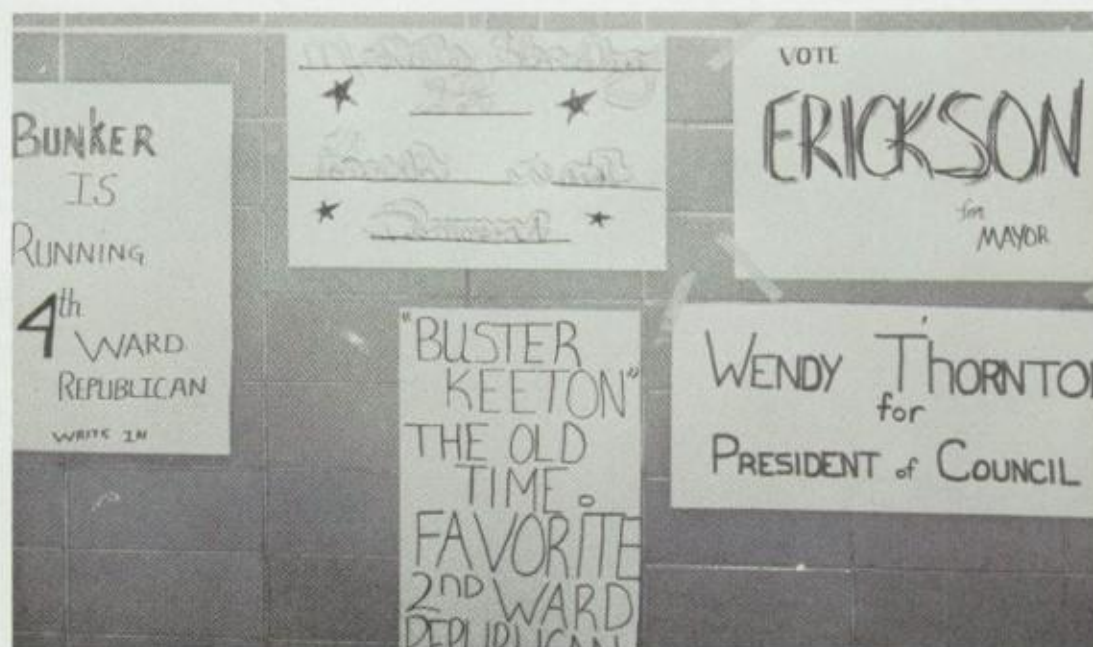 BUNKER
IS
RUNNING
4th
WARD
REPUBLICAN
WRITE IN
VOTE
ERICKSON
for
MAYOR
"BUSTER
KEETON"
THE OLD
TIME
FAVORITE
2ND WARD
REPUBLICAN
WENDY THORNTON
for
PRESIDENT of COUNCIL